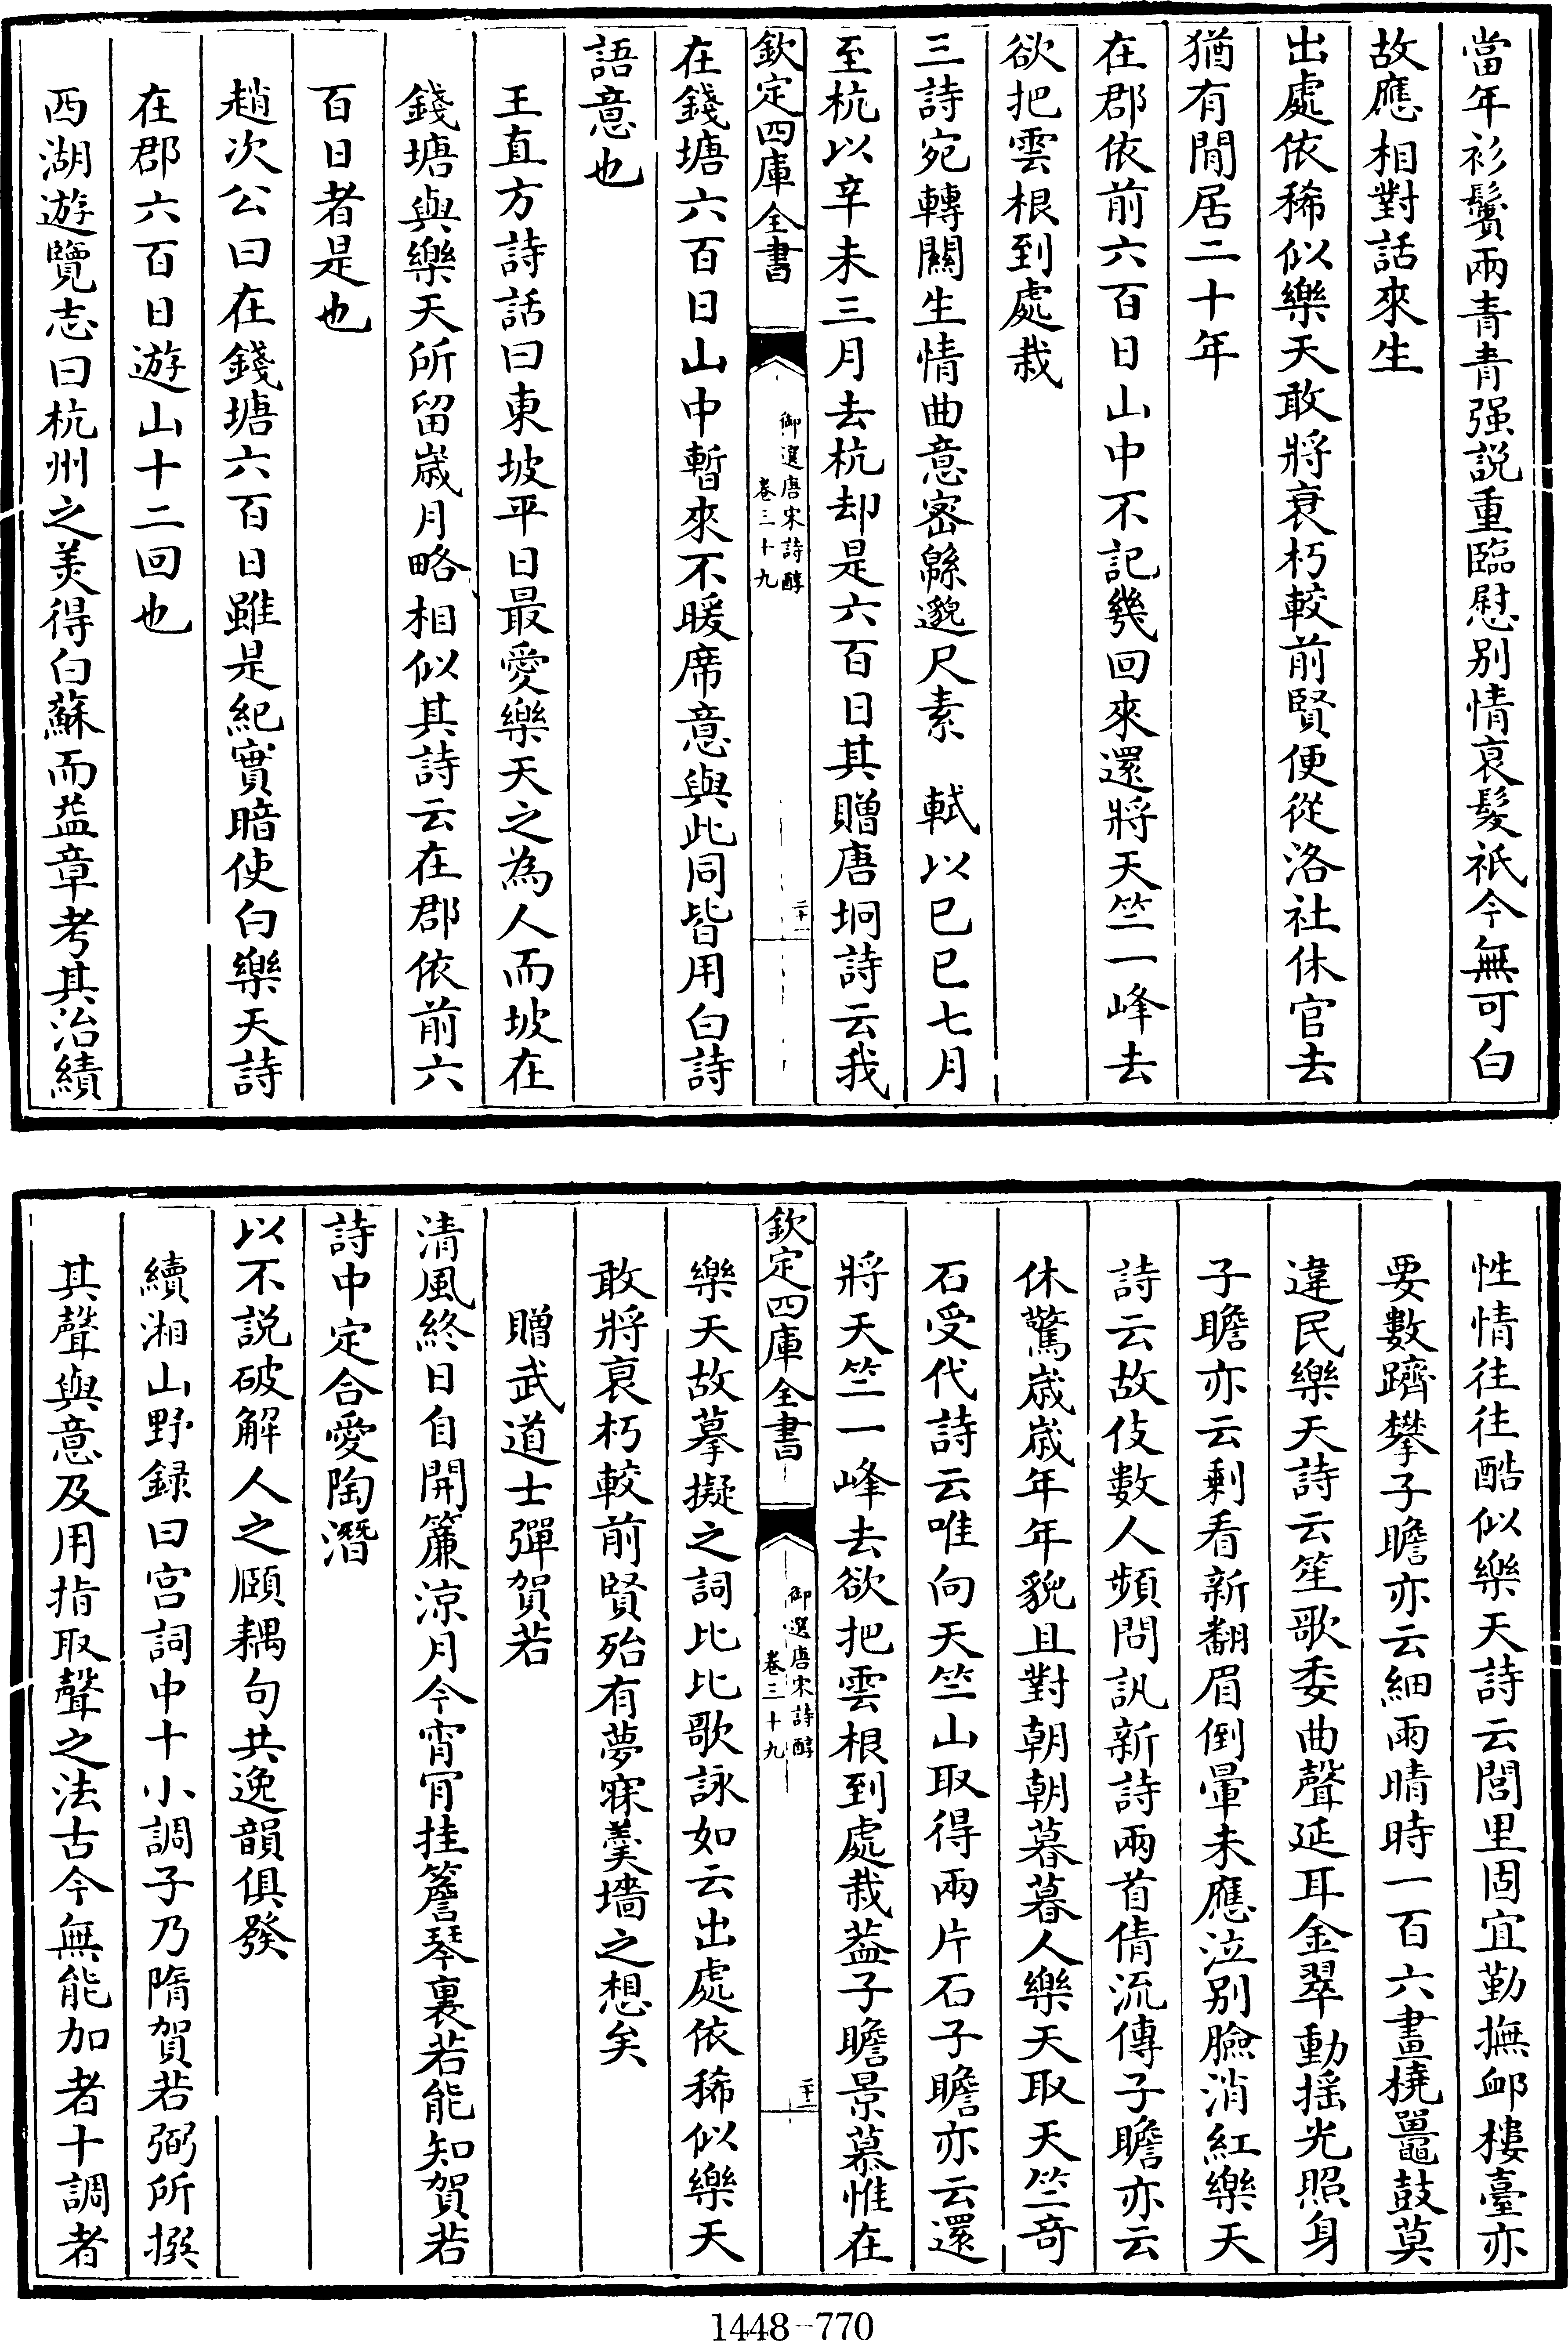 當年衫鬢兩青青强説重臨慰别情衰髮祇今無可白
故應相對話來生
出處依稀似樂天敢將衰朽較前賢便從洛社休官去
猶有閒居二十年
在郡依前六百日山中不記幾回來還將天竺一峰去
欲把雲根到處栽
三詩宛轉闗生情曲意宻緜邈尺素　軾以已巳七月
至杭以辛未三月去杭却是六百日其贈唐坰詩云我
欽定四庫全書
御選唐宋詩醇
卷三十九
二十一
在錢塘六百日山中暫來不暖席意與此同皆用白詩
語意也
王直方詩話曰東坡平日最愛樂天之為人而坡在
錢塘與樂天所留嵗月略相似其詩云在郡依前六
百日者是也
趙次公曰在錢塘六百日雖是紀實暗使白樂天詩
在郡六百日遊山十二回也
西湖遊覽志曰杭州之美得白蘇而益章考其治績
性情往往酷似樂天詩云閭里固宜勤撫䘏樓臺亦
要數躋攀子瞻亦云細雨晴時一百六畫橈鼉鼓莫
違民樂天詩云笙歌委曲聲延耳金翠動揺光照身
子瞻亦云剩看新翻眉倒暈未應泣别臉消紅樂天
詩云故伎數人頻問訊新詩兩首倩流傳子瞻亦云
休驚嵗嵗年年貌且對朝朝暮暮人樂天取天竺竒
石受代詩云唯向天竺山取得兩片石子瞻亦云還
將天竺一峰去欲把雲根到處栽葢子瞻景慕惟在
欽定四庫全書
御選唐宋詩醇
卷三十九
二十二
樂天故摹擬之詞比比歌詠如云出處依稀似樂天
敢將衰朽較前賢殆有夢寐羮墻之想矣
贈武道士彈賀若
清風終日自開簾凉月今宵肎挂簷琴裏若能知賀若
詩中定合愛陶潛
以不説破解人之頤耦句共逸韻俱發
續湘山野録曰宫詞中十小調子乃隋賀若弼所撰
其聲與意及用指取聲之法古今無能加者十調者
1448-770